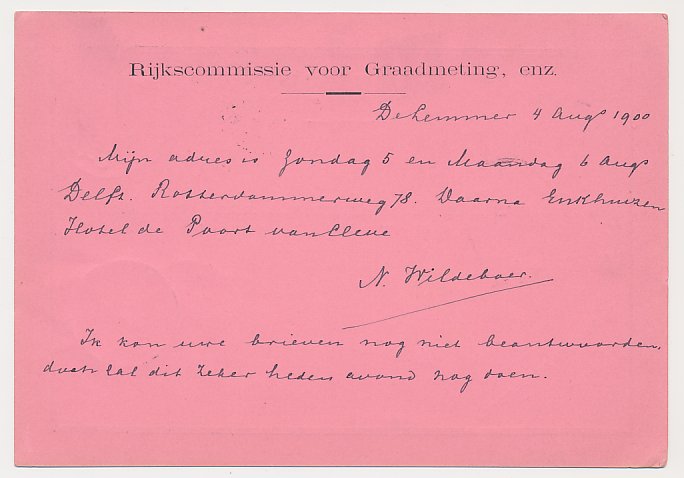 Rijkscommissie voor Graadmeting, enz.
De Lemmer 4 Augs 1900
Mijn adres is Zondag 5 en Maandag 6 Augs
Delft. Rotterdammerweg 78. Daarna Enkhuizen
Hotel de Poort van Cleve
N. Wildeboer.
Ik kon uwe brieven nog niet beantwoorden,
doch zal dit zeker heden avond nog doen.